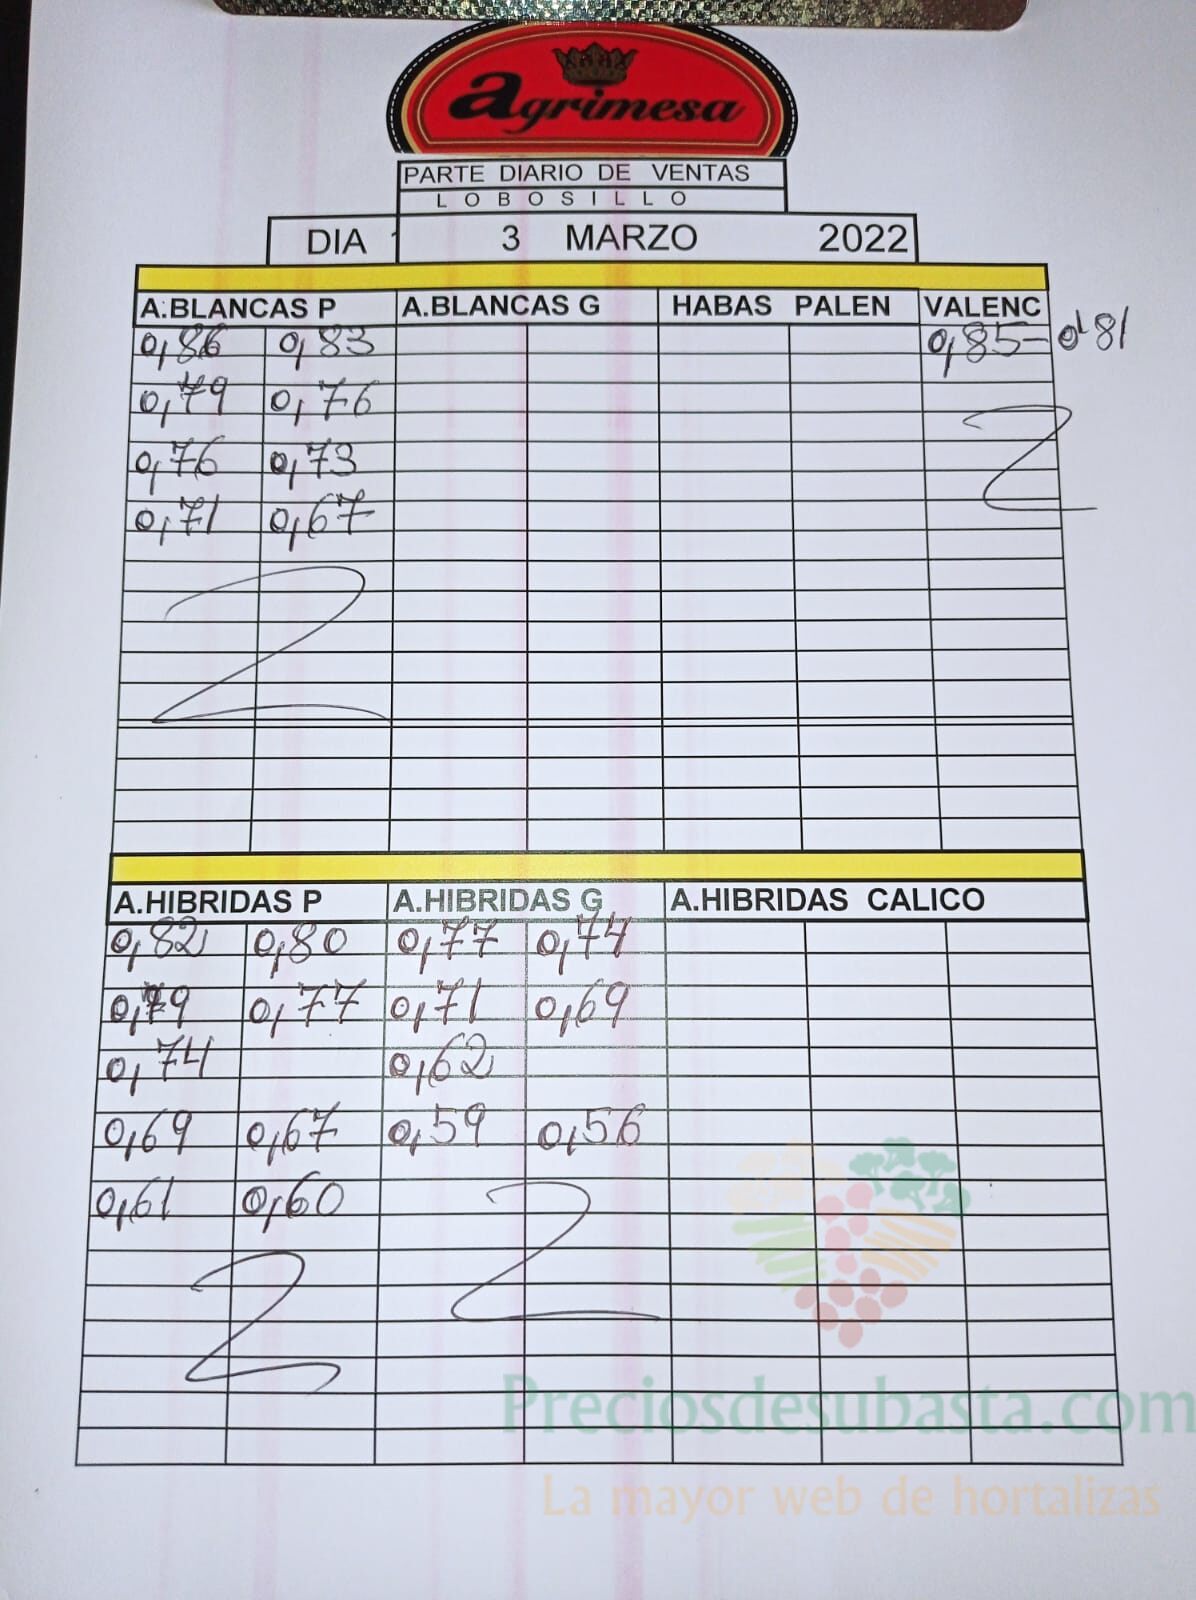 agrimesa
PARTE DIARIO DE VENTAS
LOBOSILLO
DIA 3 MARZO 2022
A.BLANCAS P A.BLANCAS G HABAS PALEN VALENC
0,86 0,83 0,85- 0'81
0,79 0,76
0,76 0,73
0,71 0,67
A.HIBRIDAS P A.HIBRIDAS G A.HIBRIDAS CALICO
0,82 0,80 0,77 0,74
0,79 0,77 0,71 0,69
0,74 0,62
0,69 0,67 0,59 0,56
0,61 0,60
Preciosdesubasta.com
La mayor web de hortalizas